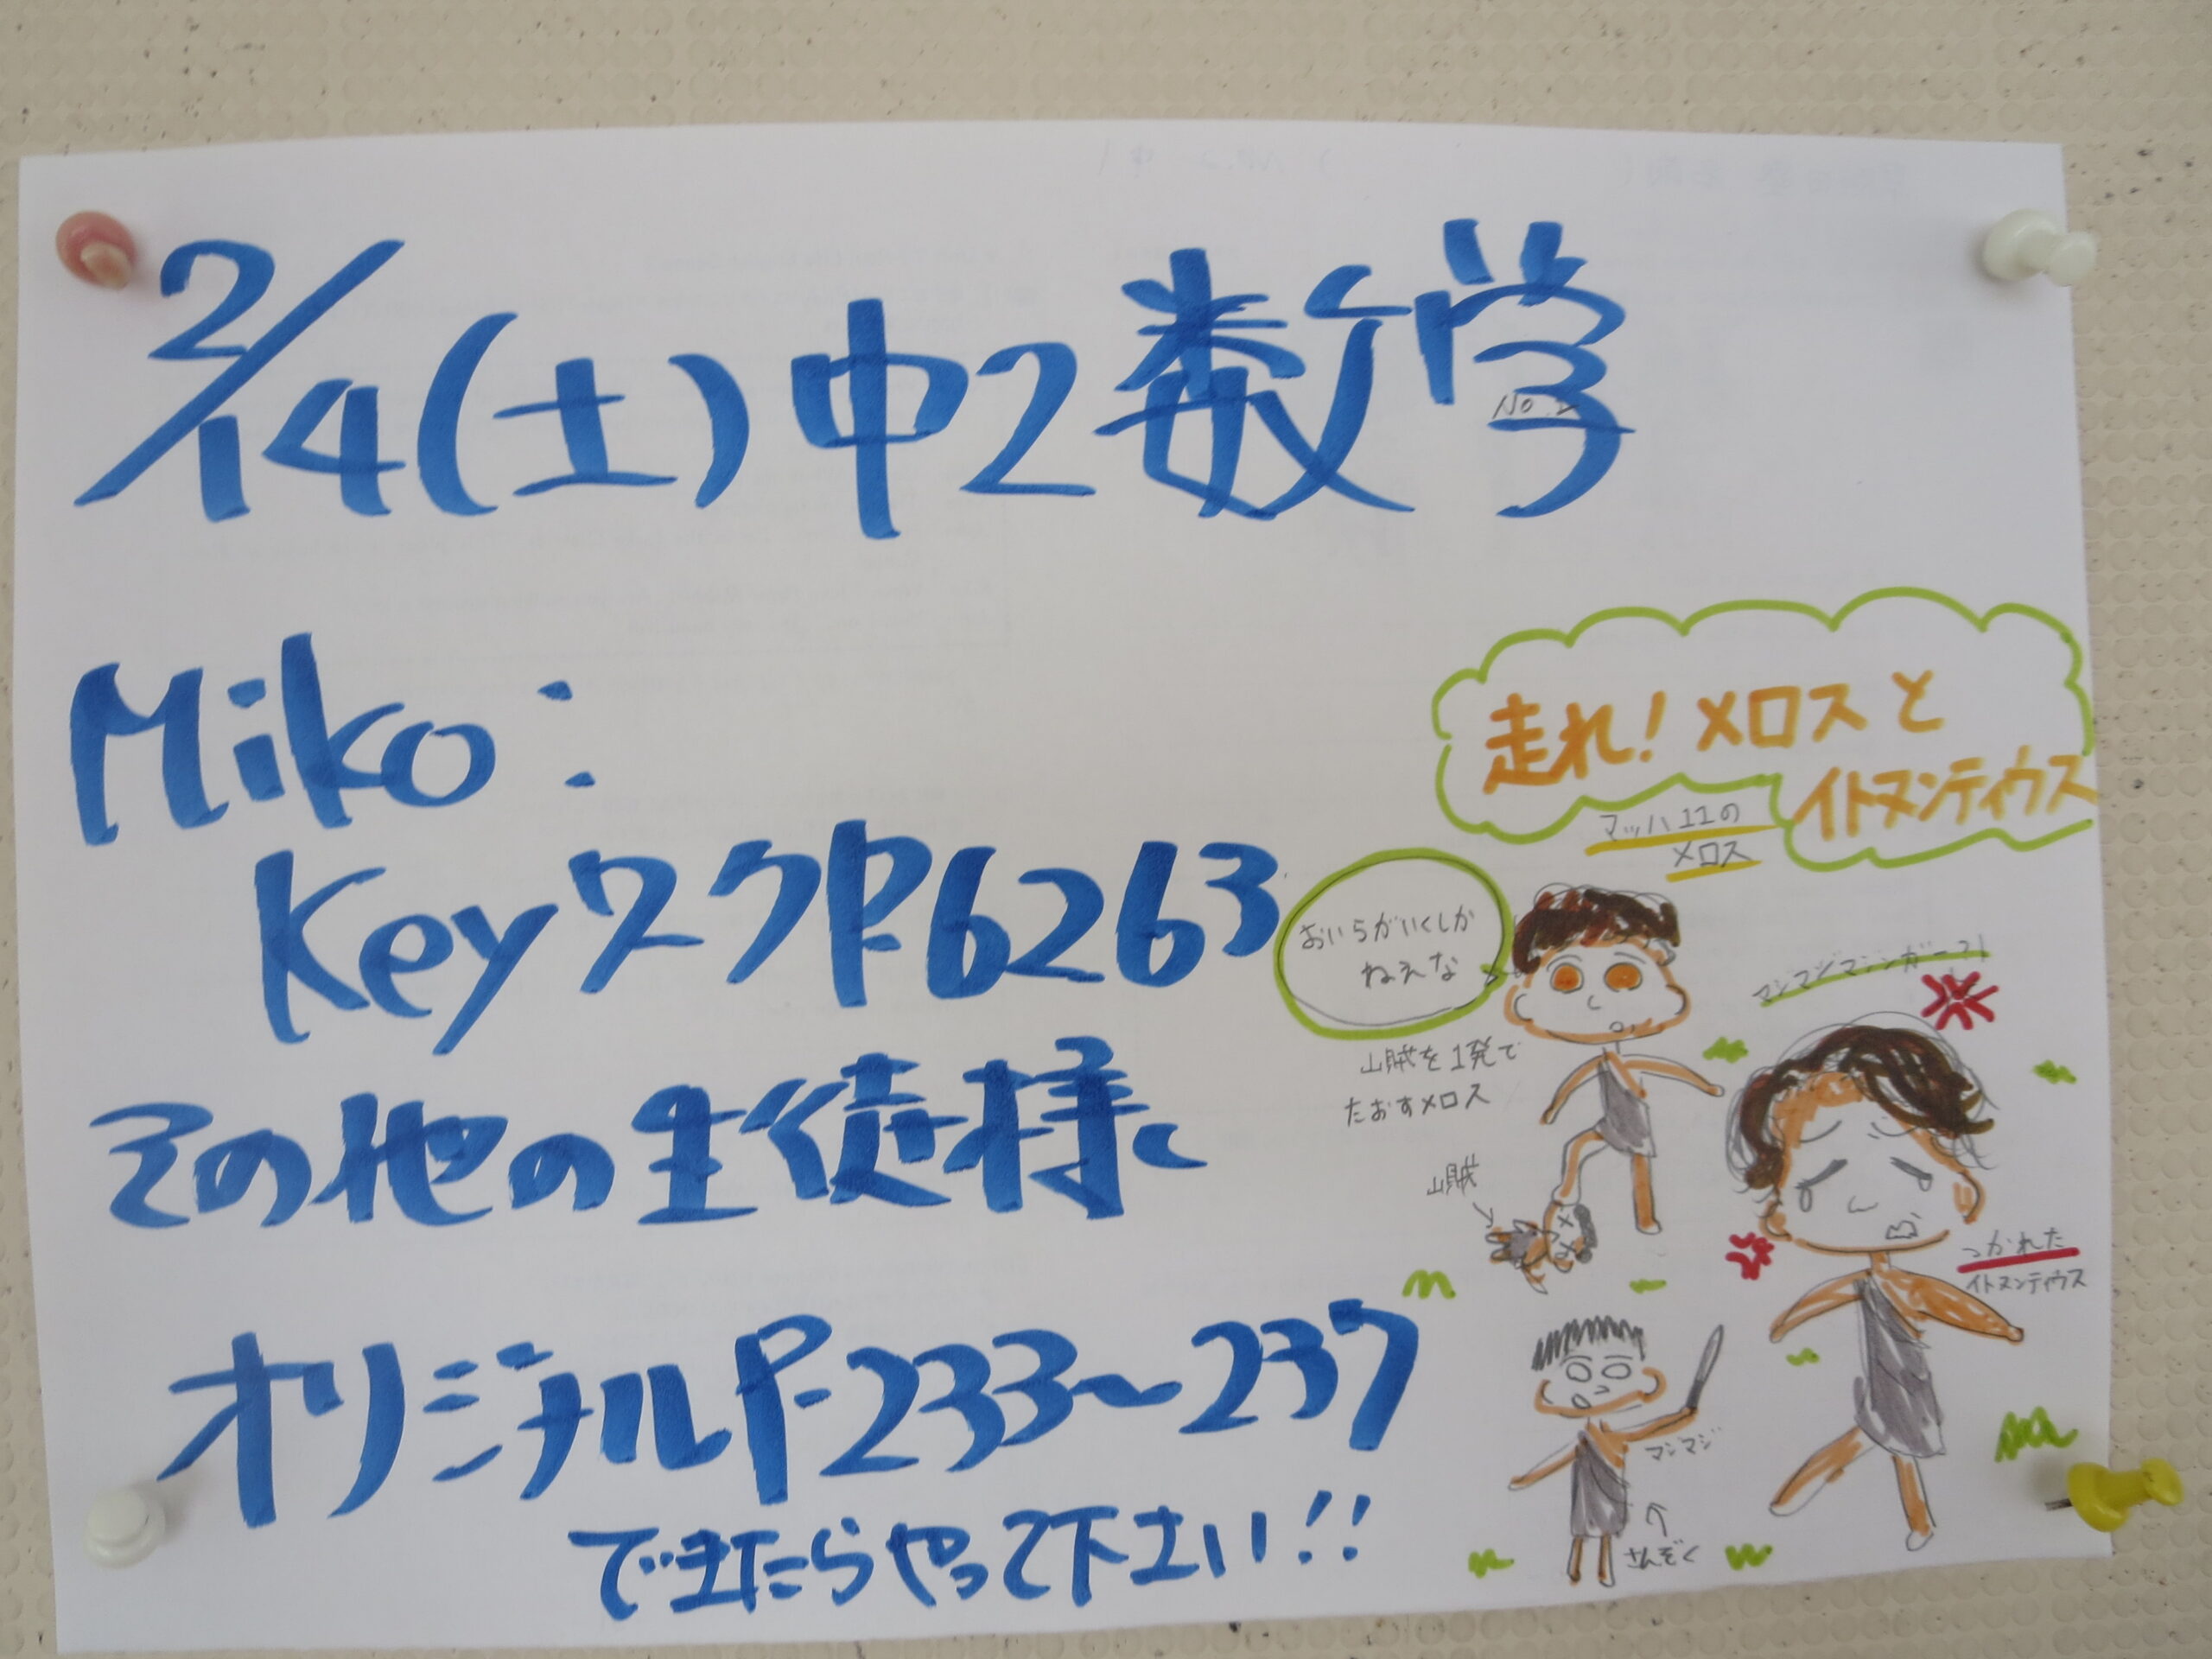 2/14(土)中2数学
No.2
Miko:
KeyワークP.6263
その他の生徒様は
オリジナルP.233〜237
できたらやって下さい!!
走れ!メロスと
イトヌンティウス
マッハ11の
メロス
おいらがいくしか
ねぇな
山賊を1発で
たおすメロス
山賊
つかれた
イトヌンティウス
マジマジ
さんぞく